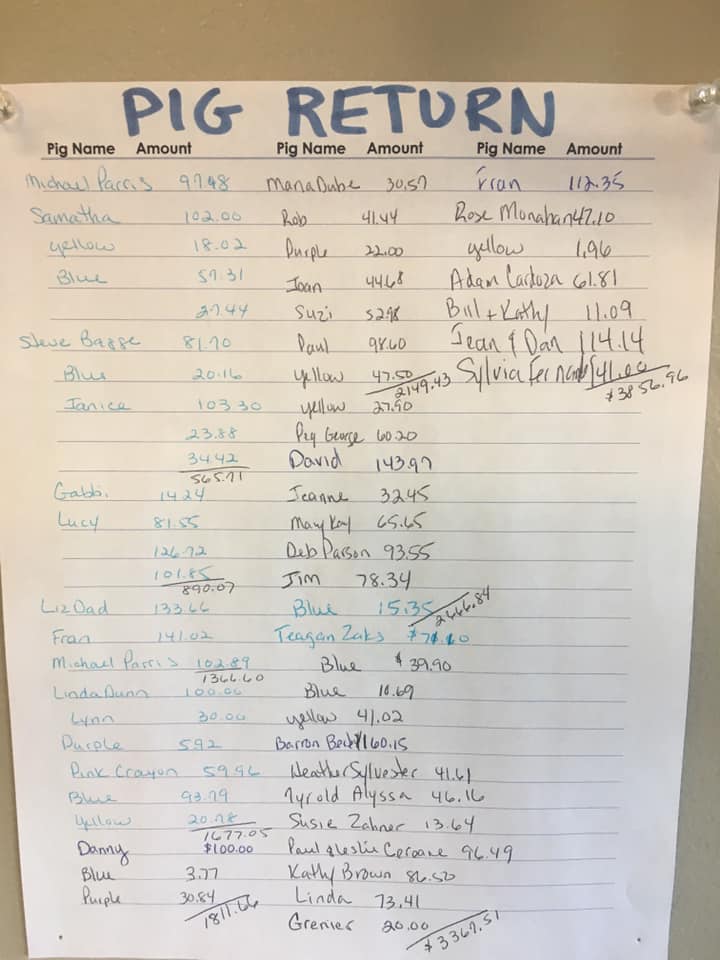 PIG RETURN
Pig Name Amount
Michael Parris 97.48
Samatha 102.00
yellow 18.02
Blue 57.31
27.44
Steve Bagge 81.70
Blue 20.16
Janice 103.30
23.88
34.42
565.71
Gabbi 14.24
Lucy 81.55
126.72
101.85
890.07
Liz Dad 133.66
Fran 141.02
Michael Parris 102.89
1366.60
Linda Dunn 100.00
Lynn 30.00
Purple 592
Pink Crayon 59.96
Blue 93.79
Yellow 20.78
1677.05
Danny $100.00
Blue 3.77
Purple 30.84
1811.66
Pig Name Amount
Maria Dube 30.57
Rob 41.44
Purple 22.00
Joan 44.68
Suzi 52.98
Paul 98.60
yellow 47.50
2149.43
yellow 27.90
Peg George 60.20
David 143.97
Jeanne 32.45
Mary Kay 65.65
Deb Parson 93.55
Jim 78.34
Blue 15.35
2666.84
Teagan Zaks $71.10
Blue $39.90
Blue 10.69
yellow 41.02
Barron 160.15
Heather Sylvester 41.61
Tyrold Alyssa 46.16
Susie Zahner 13.64
Paul & Leslie 96.49
Kathy Brown 86.50
Linda 73.41
Grenier 20.00
$3367.51
Pig Name Amount
Fran 112.35
Rose Monahan 47.10
yellow 1.96
Adam Cardoza 61.81
Bill + Kathy 11.09
Jean & Dan 114.14
Sylvia Fernands 141.00
$3856.96